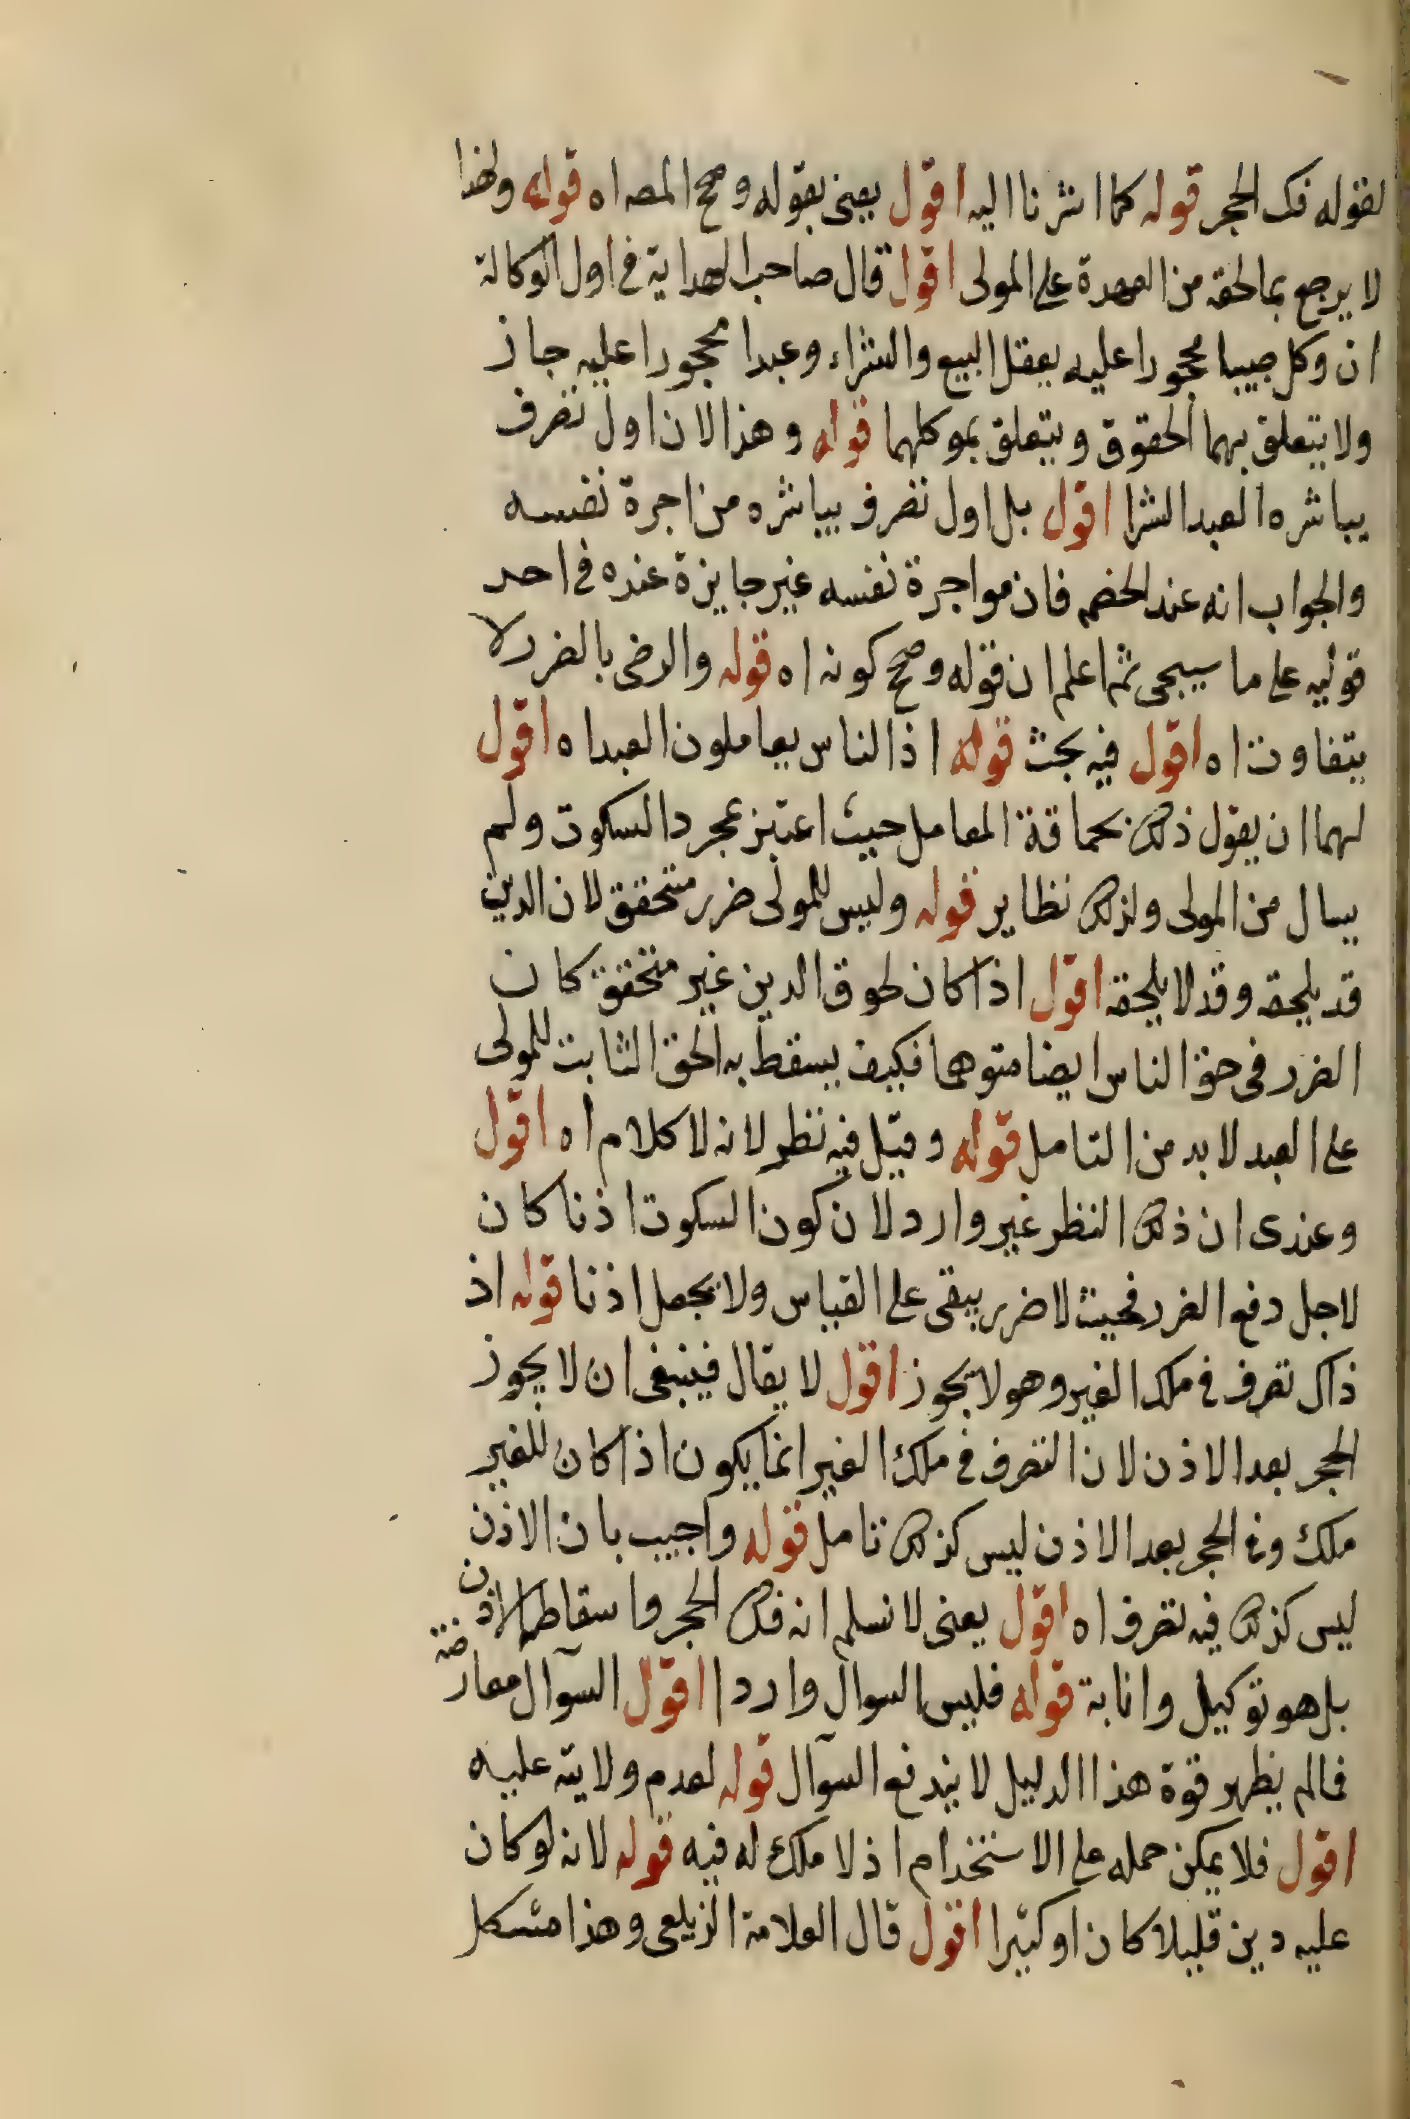 لقوله فك الحجر قوله كما اشرنا اليه اقول يعنى بقوله وصح المص اه قوله ولهذا
لا يرجع بما لحقه من العهدة على المولى اقول قال صاحب الهداية فى اول الوكالة
ان وكل صبيا محجورا عليه يعقل البيع والشراء وعبدا محجورا عليه جاز
ولا يتعلق بهما الحقوق ويتعلق بموكلهما قوله وهذا لان اول تصرف
يباشره العبد الشرا اقول بل اول تصرف يباشره من اجرة نفسه
والجواب انه عند الخصم فان مواجرة نفسه غير جايزة عنده فى احد
قوليه على ما سيجى ثم اعلم ان قوله وصح كونه اه قوله والرضى بالضرر لا
يتفاوت اه اقول فيه بحث قوله اذ الناس يعاملون العبد اه اقول
لهما ان يقول ذلك بحماقة المعامل حيث اعتبر بمجرد السكوت ولم
يسال من المولى ولذلك نظاير قوله وليس للمولى ضرر متحقق لان الدين
قد يلحقه وقد لا يلحقه اقول اذا كان لحوق الدين غير متحقق كان
الضرر فى حق الناس ايضا متوهما فكيف يسقط به الحق الثابت للمولى
على العبد لا بد من التامل قوله وقيل فيه نظر لانه لا كلام اه اقول
وعندى ان ذلك النظر غير وارد لان كون السكوت اذنا كان
لاجل دفع الضرر فحيث لا ضرر يبقى على القياس ولا يجعل اذنا قوله اذ
ذاك تصرف فى ملك الغير وهو لا يجوز اقول لا يقال فينبغى ان لا يجوز
الحجر بعد الاذن لان التصرف فى ملك الغير انما يكون اذا كان للغير
ملك وفى الحجر بعد الاذن ليس كذلك تامل قوله واجيب بان الاذن
ليس كذلك فيه تصرف اه اقول يعنى لا نسلم انه فك الحجر واسقاط الاذن
بل هو توكيل وانابة قوله فليس السوال واردا اقول السوآل معارضة
فما لم يظهر قوة هذا الدليل لا يندفع السوآل قوله لعدم ولايته عليه
اقول فلا يمكن حمله على الاستخدام اذ لا ملك له فيه قوله لانه لو كان
عليه دين قليلا كان او كثيرا اقول قال العلامة الزيلعى وهذا مشكل